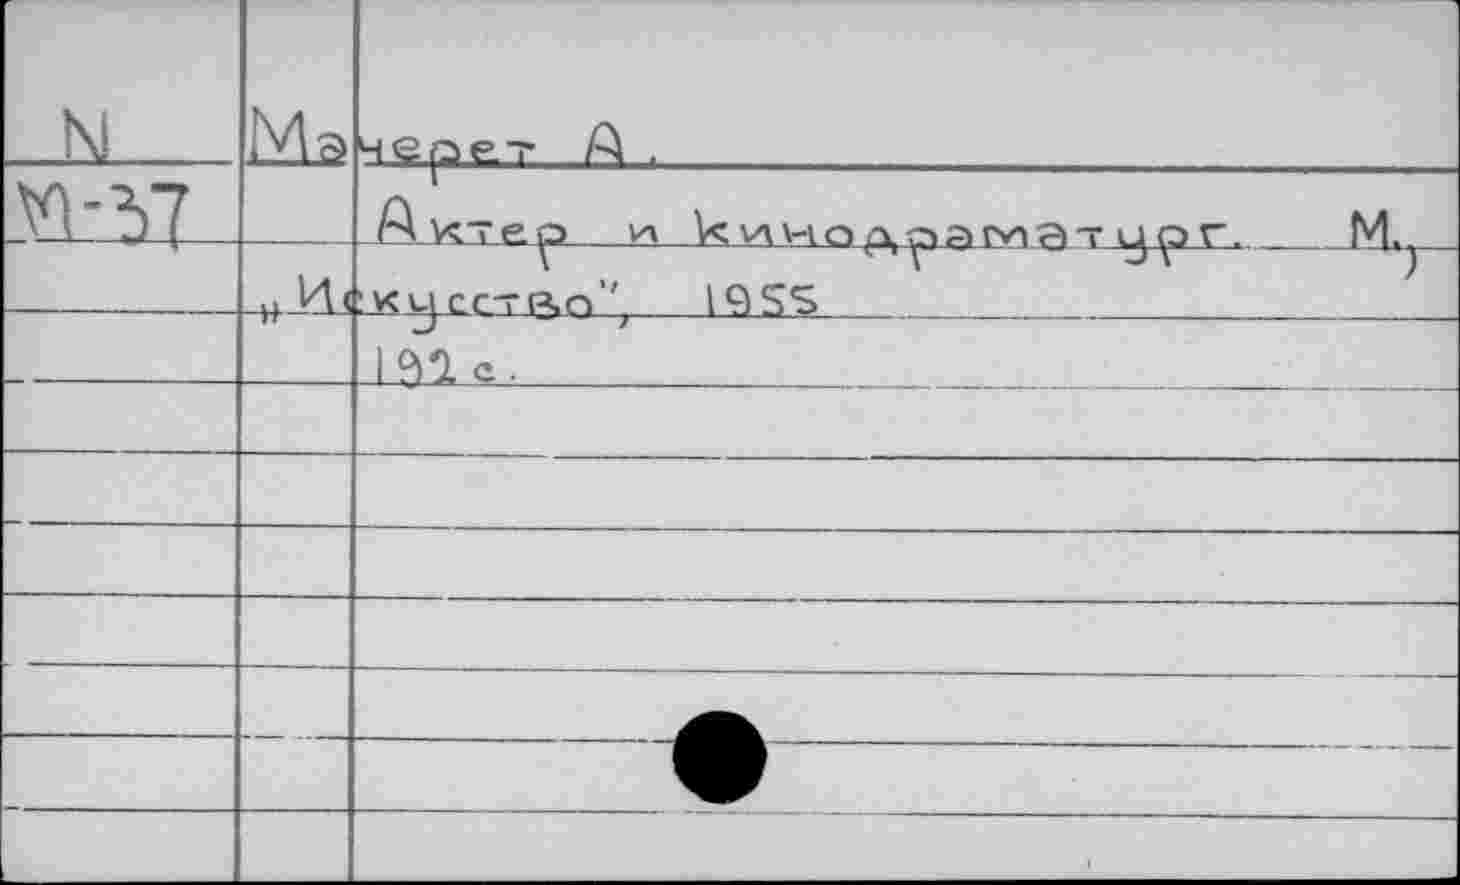 N Мачерет А.
М-37 Актер и кинодраматург. М.,
„Искусство", 1955
192 с.